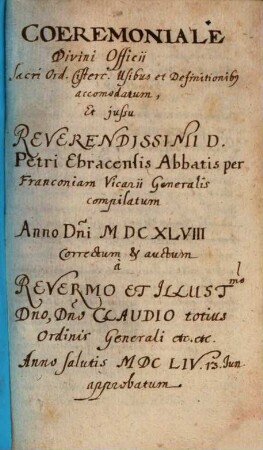 COEREMONIALE
Divini Officii
Sacri Ord. Cisterc. Usibus et Definitionibꝰ
accomodatum,
Et jussu
REVERENDISSIMI D.
Petri Ebracensis Abbatis per
Franconiam Vicarii Generalis
compilatum
Anno Dn̄i M DC XLVIII
Correctum & auctum
a
REVERMO ET ILLUSTmo
Dno, Dn̄o CLAUDIO totius
Ordinis Generali etc. etc.
Anno salutis MDC LIV. 13. Jun
approbatum